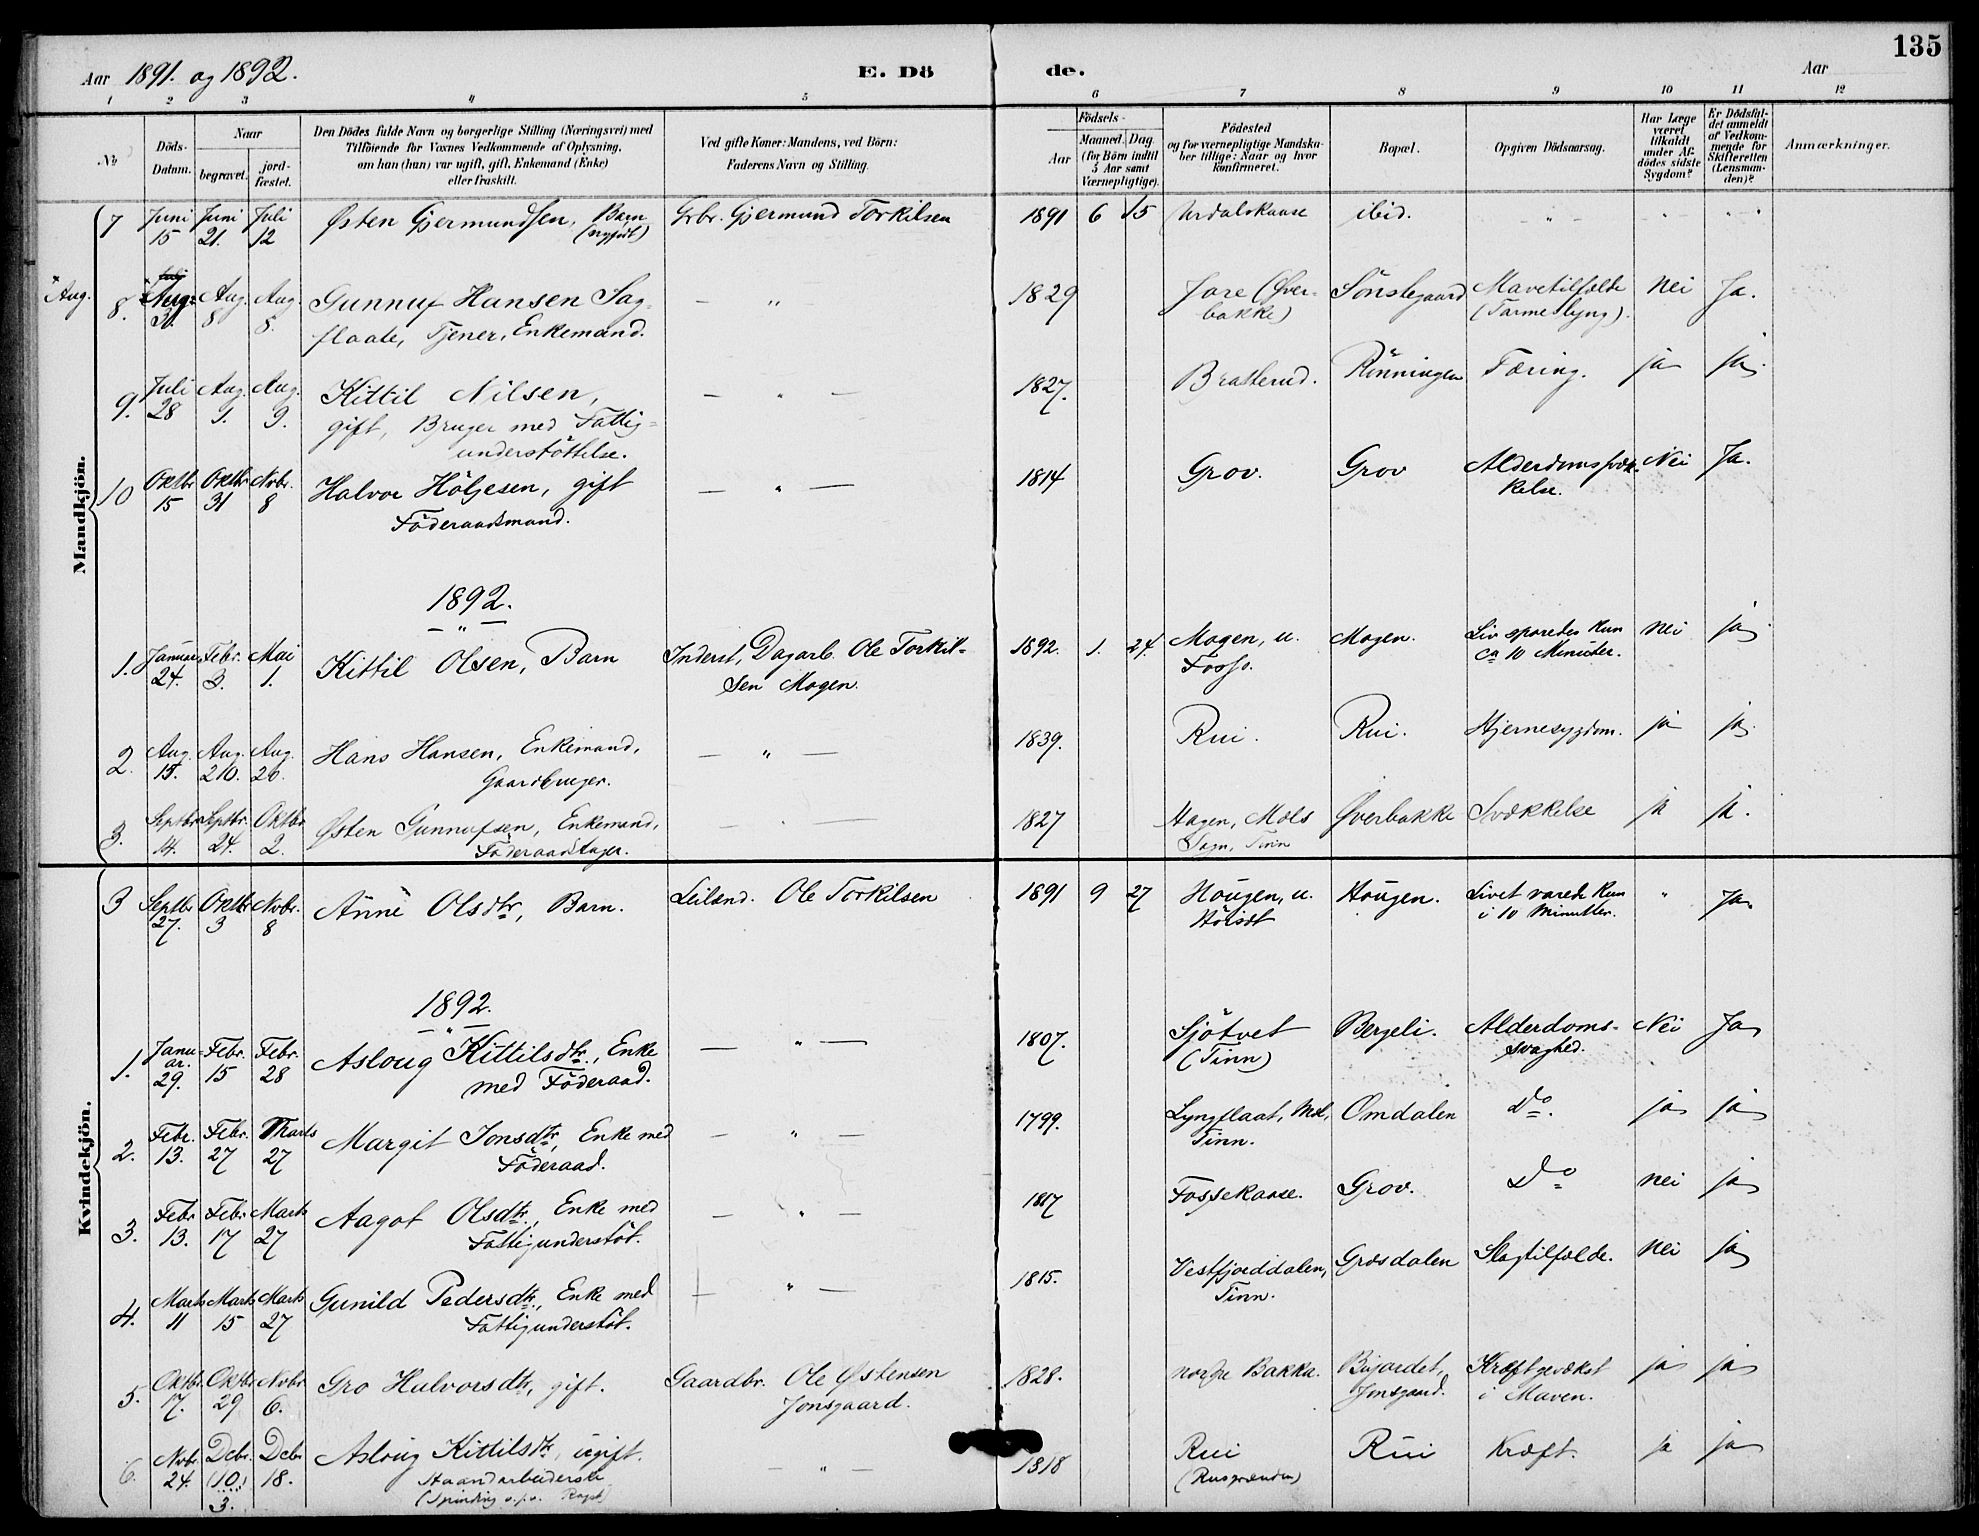 135
Aar 1891. og 1892. E. Dö de. Aar
1 2 3 4 5 6 7 8 9 10 11 12
No
Döds-Datum.
Naar
begravet.
jord-fæstet.
Den Dödes fulde Navn og borgerlige Stilling (Næringsvei) med
Tilföiende for Voxnes Vedkommende af Oplysning,
om han (hun) var ugift, gift, Enkemand (Enke)
eller fraskilt.
Ved gifte Koner: Mandens, ved Börn:
Faderens Navn og Stilling.
Födsels-
Aar
Maaned. Dag
(for Börn indtil
5 Aar samt
Værnepligtige).
Födested
og for værnepligtige Mandska-
ber tillige: Naar og hvor
konfirmeret.
Bopæl.
Opgiven Dödsaarsag.
Har Læge
været
tilkaldt
under Af-
dödes sidste
Sygdom?
Er Dödsfal-
det anmeldt
af Vedkom-
mende for
Skifteretten
(Lensman-
den)?
Anmærkninger.
Mandkjön.
7 Juni 15 Juni 21. Juli 12 Østen Gjermundsen, Barn (nyfödt) Grbr. Gjermund Torkilsen 1891 6 15 Urdalskaase ibid. " "
"Aug. 8. Aug. 3. Aug. 8 Aug. 8. Gunnuf Hansen Sag-
flaate, Tjener, Enkemand. — " 1829 Jore (Øver-
bakke) Sönstegaard Mavetilfælde
(Tarmeslyng). Nei Ja.
9. Juli 28 Aug. 1. Aug. 9. Kittil Nilsen,
gift, Bruger med Fattig-
understöttelse. — " — 1827. Bratterud. Rönningen Tæring. ja ja.
10 Oktbr. 15 Oktbr. 31 Nvbr. 8 Halvor Höljesen, gift
Föderaadsmand. — " — 1814 Grov. Grov Alderdomssvæk-
kelse. Nei Ja.
1892.
— " —
1. Januar 24. Febr. 3. Mai 1. Kittil Olsen, Barn Inderst, Dagarb. Ole Torkil-
sen Mogen. 1892. 1. 24. Mogen, u.
Fosso. Mogen. Liv sporedes kun
ca 10 Minuter. Nei ja
2. Aug. 15. Aug. 210. Aug. 26. Hans Hansen, Enkemand,
Gaardbruger. — " — 1839. Rui. Rui. Hjernesygdom. ja ja.
3. Septbr. 14. Septbr. 24. Oktbr 2. Østen Gunnufsen, Enkemand,
Föderaadstager. 1827 Hagen, Mæls
Sogn, Tinn Øverbakke Svækkelse ja ja.
Kvindekjön.
3 Septbr. 27. Oktbr 3 Nvbr. 8 Anne Olsdtr, Barn. Leilænd. Ole Torkilsen 1891 9 27 Hougen, u.
Höisæt Hougen. Livet varede kun
i 10 Minutter. " Ja
1892.
— " —
1. Janu-
ar. 29. Febr. 15 Febr. 28 Asloug Kittilsdtr., Enke
med Föderaad. — " — 1807. Sjötvet
(Tinn) Bergeli. Alderdoms-
svaghed. Nei Ja
2. Febr. 13. Febr. 27 Marts 27 Margit Jonsdtr, Enke med
Föderaad. — " — 1799. Lyngflaat, Mæl,
Tinn. Omdalen Do. ja ja
3. Febr 13. Febr. 17 Marts 27 Aagot Olsdtr., Enke med
Fattigunderstöt. — " — 1817 Fossekaase. Grov. Do nei ja
4. Marts 11 Marts 15 Marts 27 Gunild Pedersdtr., Enke med
Fattigunderstöt. " — 1815. Vestfjorddalen,
Tinn. Grösdalen Slagtilfælde. nei ja
5. Oktbr. 17. Oktbr. 29 Nvbr 6. Gro Halvorsdtr, gift. Gaardbr. Ole Østensen
Jonsgaard. 1828. nordre Bakka. Bøjordet,
Jonsgaard. Kræftgevækst
i Maven. ja ja
6. Nvbr. 24. Dcbr. (10.) 3. Dcbr 18. Asloug Kittilsdtr, ugift.
Haandarbeiderske
(Spinding o.s.v. — " — 1818 Rui
(Ruigrænden) Rui Kræft. ja ja